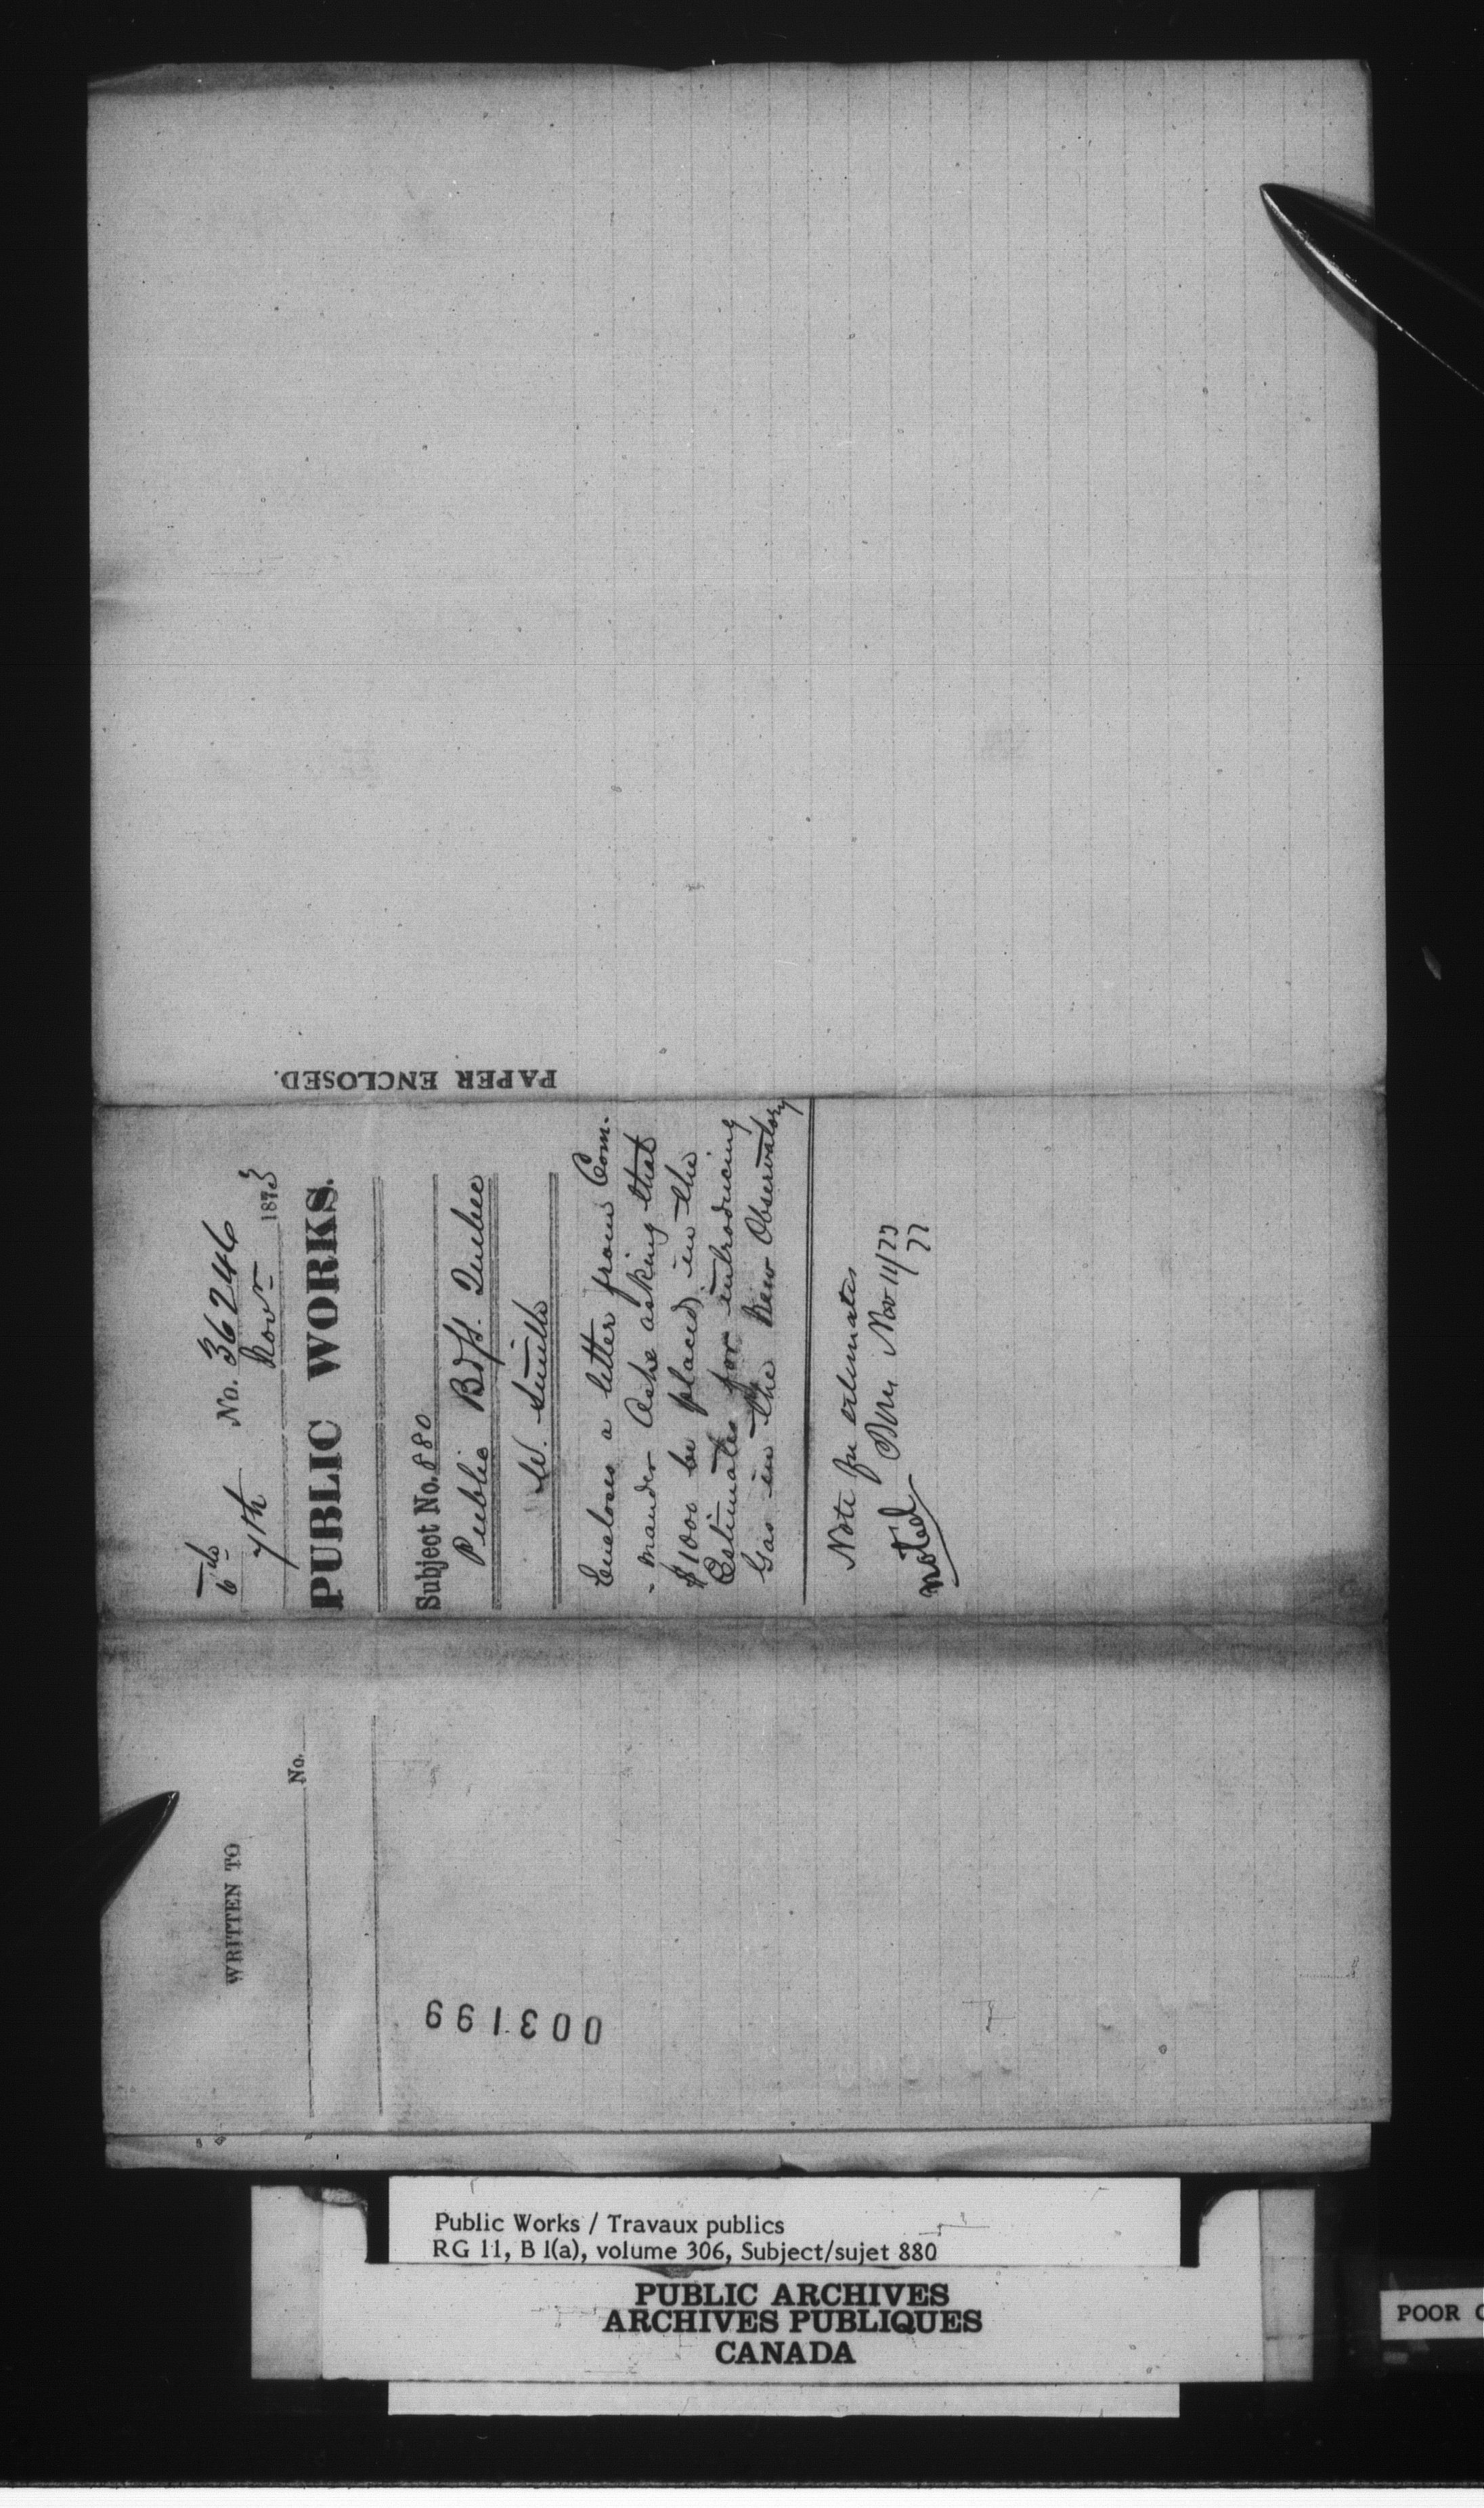 6th No. 36246
7th Novr 1873
PUBLIC WORKS.
Subject No. 880
Public Bdgs. Quebec
W. Smith
Encloses a letter from Com-
-mander Ashe asking that
$1000 be placed in the
Estimates for introducing
Gas in the New Observatory
Note for estimates
Nov 11/73
Noted
PAPER ENCLOSED.
WRITTEN TO
No.
003199
Public Works / Travaux publics
RG 11, B 1(a), volume 306, Subject/sujet 880
PUBLIC ARCHIVES
ARCHIVES PUBLIQUES
CANADA
POOR